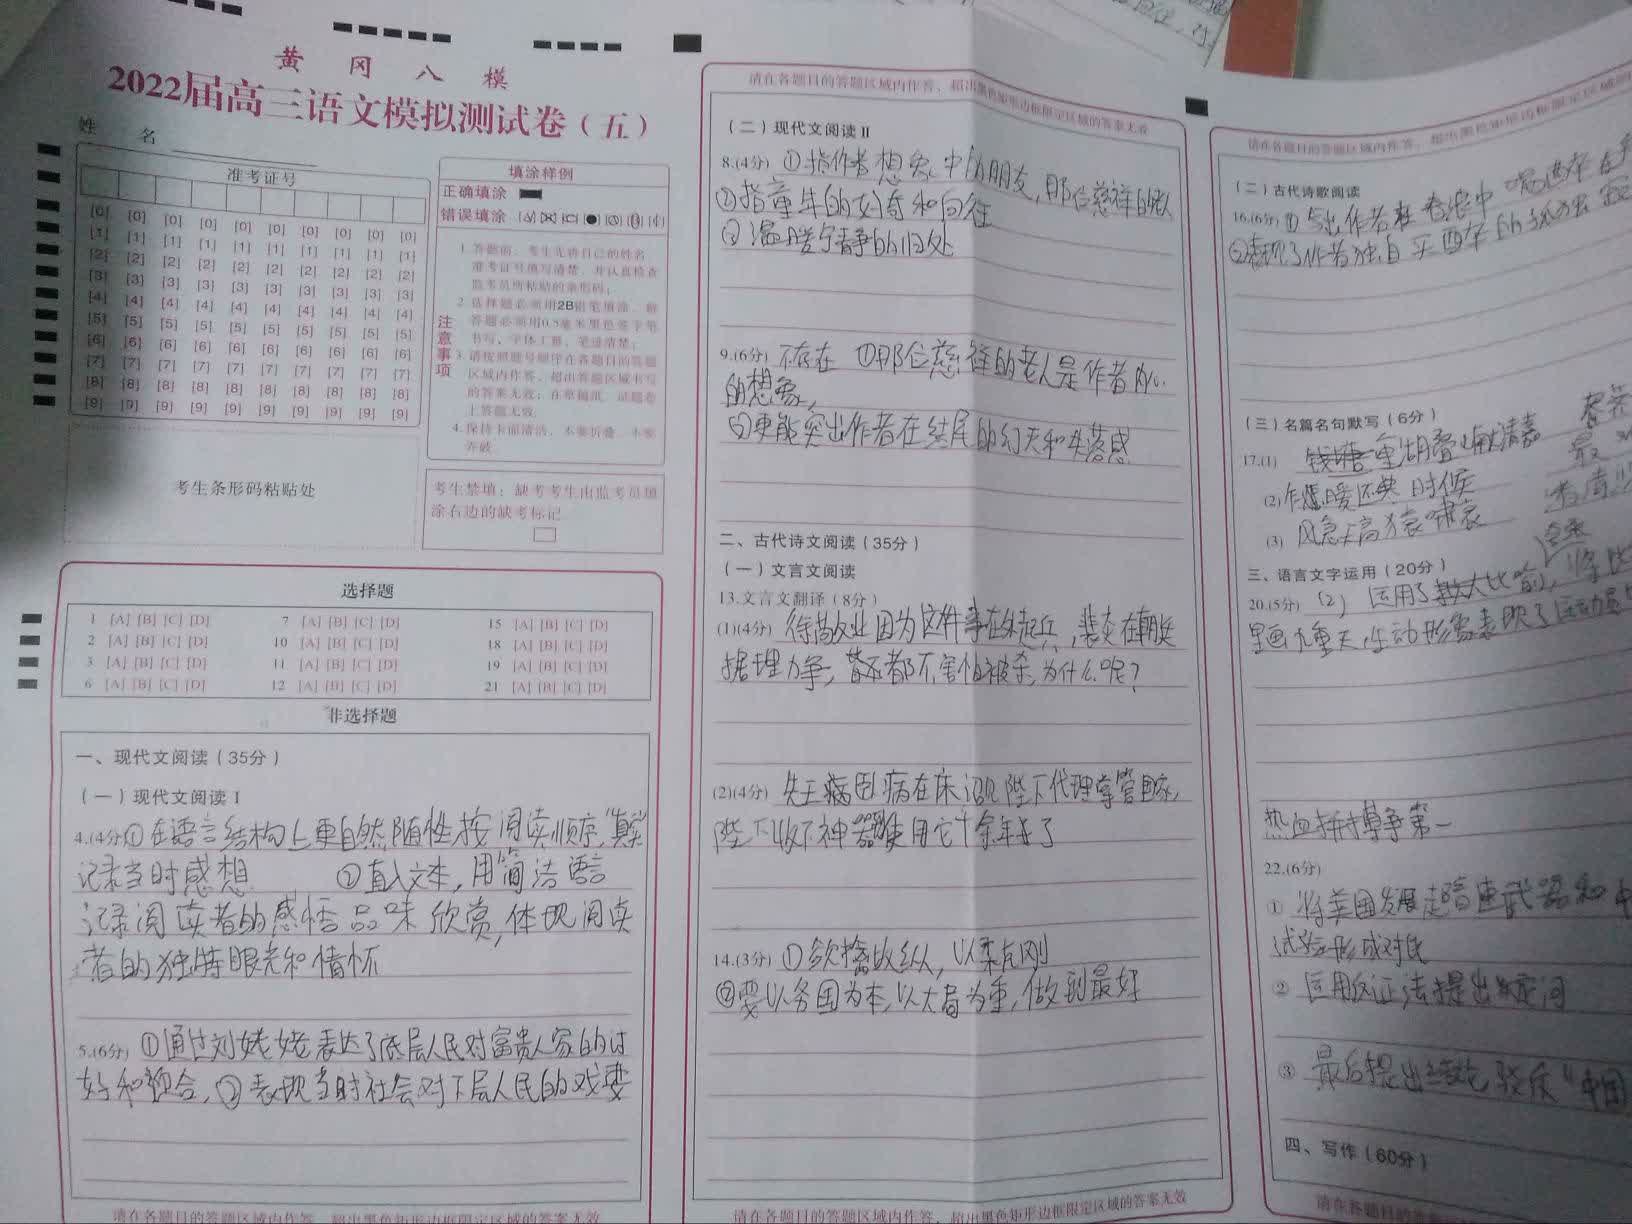 黄冈八模
2022届高三语文模拟测试卷（五）
姓 名
准考证号
[0] [0] [0] [0] [0] [0] [0] [0]
[1] [1] [1] [1] [1] [1] [1] [1]
[2] [2] [2] [2] [2] [2] [2] [2]
[3] [3] [3] [3] [3] [3] [3] [3]
[4] [4] [4] [4] [4] [4] [4] [4]
[5] [5] [5] [5] [5] [5] [5] [5]
[6] [6] [6] [6] [6] [6] [6] [6]
[7] [7] [7] [7] [7] [7] [7] [7]
[8] [8] [8] [8] [8] [8] [8] [8]
[9] [9] [9] [9] [9] [9] [9] [9]
填涂样例
正确填涂
错误填涂
注意事项
1. 答题前，考生先将自己的姓名、
准考证号填写清楚，并认真检查
监考员所粘贴的条形码；
2. 选择题必须用2B铅笔填涂，解
答题必须用0.5毫米黑色签字笔
书写，字体工整，笔迹清楚；
3. 请按照题号顺序在各题目的答题
区域内作答，超出答题区域书写
的答案无效；在草稿纸、试题卷
上答题无效
4. 保持卡面清洁，不要折叠、不要
弄破
考生条形码粘贴处
考生禁填：缺考考生由监考员填
涂右边的缺考标记
选择题
1 [A] [B] [C] [D] 7 [A] [B] [C] [D] 15 [A] [B] [C] [D]
2 [A] [B] [C] [D] 10 [A] [B] [C] [D] 18 [A] [B] [C] [D]
3 [A] [B] [C] [D] 11 [A] [B] [C] [D] 19 [A] [B] [C] [D]
6 [A] [B] [C] [D] 12 [A] [B] [C] [D] 21 [A] [B] [C] [D]
非选择题
一、现代文阅读（35分）
（一）现代文阅读 I
4.(4分)①在语言结构上更自然随性,按阅读顺序,"真实"
记录当时感想 ②直入文本,用简洁语言
记录阅读者的感悟品味欣赏,体现阅读
者的独特眼光和情怀
5.(6分) ①通过刘姥姥表达了底层人民对富贵人家的讨
好和迎合,②表现当时社会对下层人民的戏耍
请在各题目的答题区域内作答，超出黑色矩形边框限定区域的答案无效
请在各题目的答题区域内作答，超出黑色矩形边框限定区域的答案无效
（二）现代文阅读 II
8.(4分) ①指作者想象中的朋友,那位慈祥的老人
②指童年的好奇和向往
③温暖宁静的归处
9.(6分) 不存在 ①那位慈祥的老人是作者内心
的想象,
②更能突出作者在结尾的幻灭和失落感
二、古代诗文阅读（35分）
（一）文言文阅读
13.文言文翻译（8分）
(1)(4分) 徐敬业因为这件事在外起兵,裴炎在朝廷
据理力争,都不害怕被杀,为什么呢?
(2)(4分) 先王病困病在床诏陛下代理掌管国家,
陛下收下神器使用它十余年了
14.(3分) ①欲擒故纵,以柔克刚
②要以务国为本,以大局为重,做到最好
请在各题目的答题区域内作答，超出黑色矩形边框限定区域的答案无效
请在各题目的答题区域内作答，超出黑色矩形边框限定区域
（二）古代诗歌阅读
16.(6分) ①写出作者在
②表现了作者独自 的孤独
（三）名篇名句默写（6分）
17.(1) 重湖叠巘清嘉
(2)乍暖还寒时候
(3) 风急天高猿啸哀
三、语言文字运用（20分）
20.(5分) (2) 运用了 比
里画九重天,生动形象表现了运动员
热血拼搏争第一
22.(6分)
① 将美国发展超高速武器和中
试验形成对比
② 运用反证法提出疑问
③ 最后提出 "中国
四、写作（60分）
请在各题目的答题区域内作答，超出黑色矩形边框限定区域